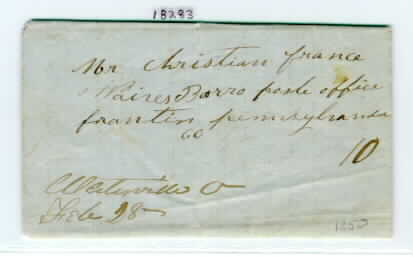 18293
Mr Christian france
Waires Borro poste office
frantin pennsylvania
co
10
Waterville O
Feb 28
1850